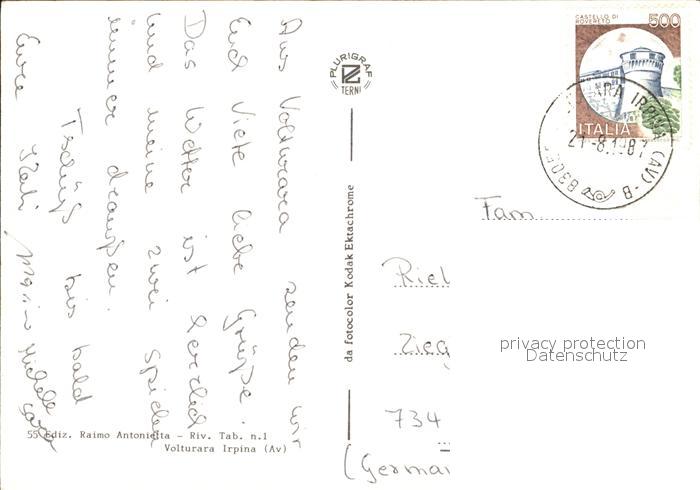 Aus Volturara senden wir
Euch viele liebe Grüße.
Das Wetter ist herrlich
und meine zwei spielen
immer draußen.
Tschüß bis bald
Eure Kati Mario Michele
Sara
PLURIGRAF
TERNI
CASTELLO DI
ROVERETO
500
ITALIA
ARA IRPINA (AV) - B
21 -8.1987
8305
da fotocolor Kodak Ektachrome
Fam.
Riel
Zieg
734
(Germa
privacy protection
Datenschutz
55 Ediz. Raimo Antonietta - Riv. Tab. n.1
Volturara Irpina (Av)